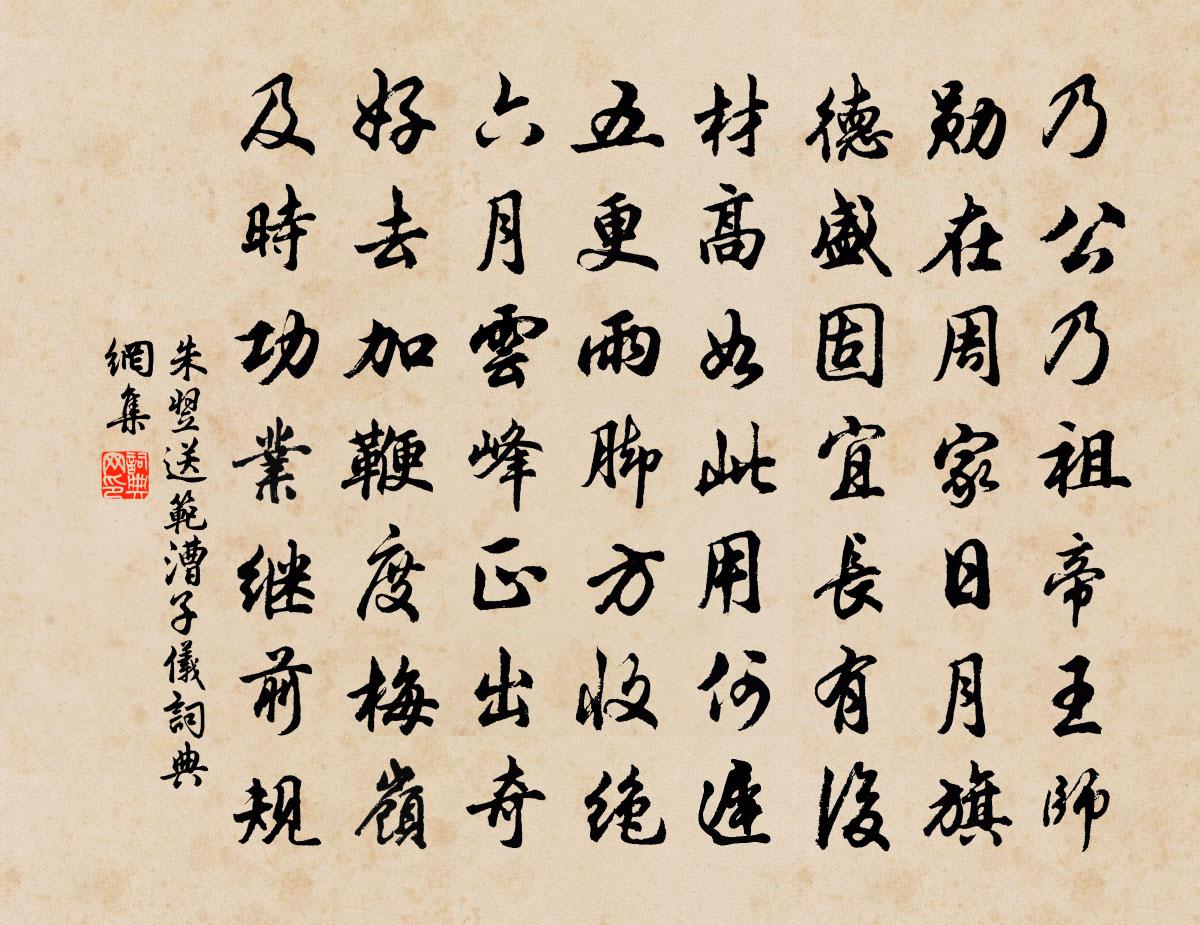 乃公乃祖帝王師
勛在周家日月旗
德盛固宜長有後
材高如此用何遲
五更雨脚方收绝
六月雲峰正出奇
好去加鞭度梅嶺
及時功業继前規
朱翌送範漕子儀詞典
網集
詞典网印